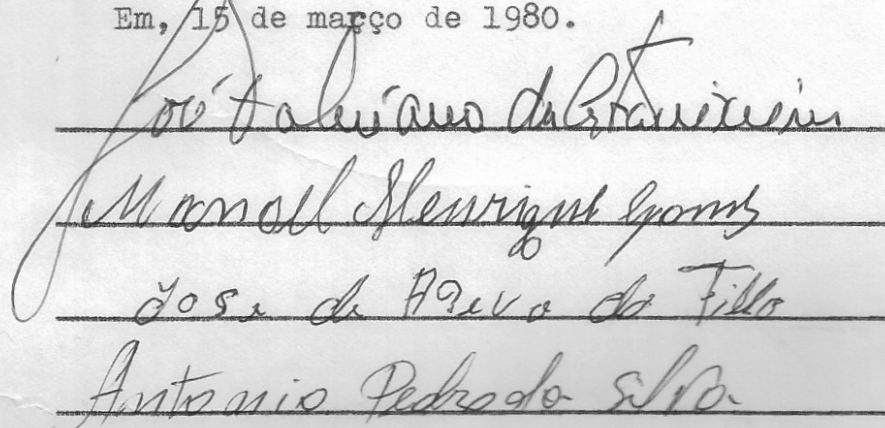 Em, 15 de março de 1980.
José
Manoel Henrique Gomes
Jose de Azevo do Filho
Antonio Pedro da Silva